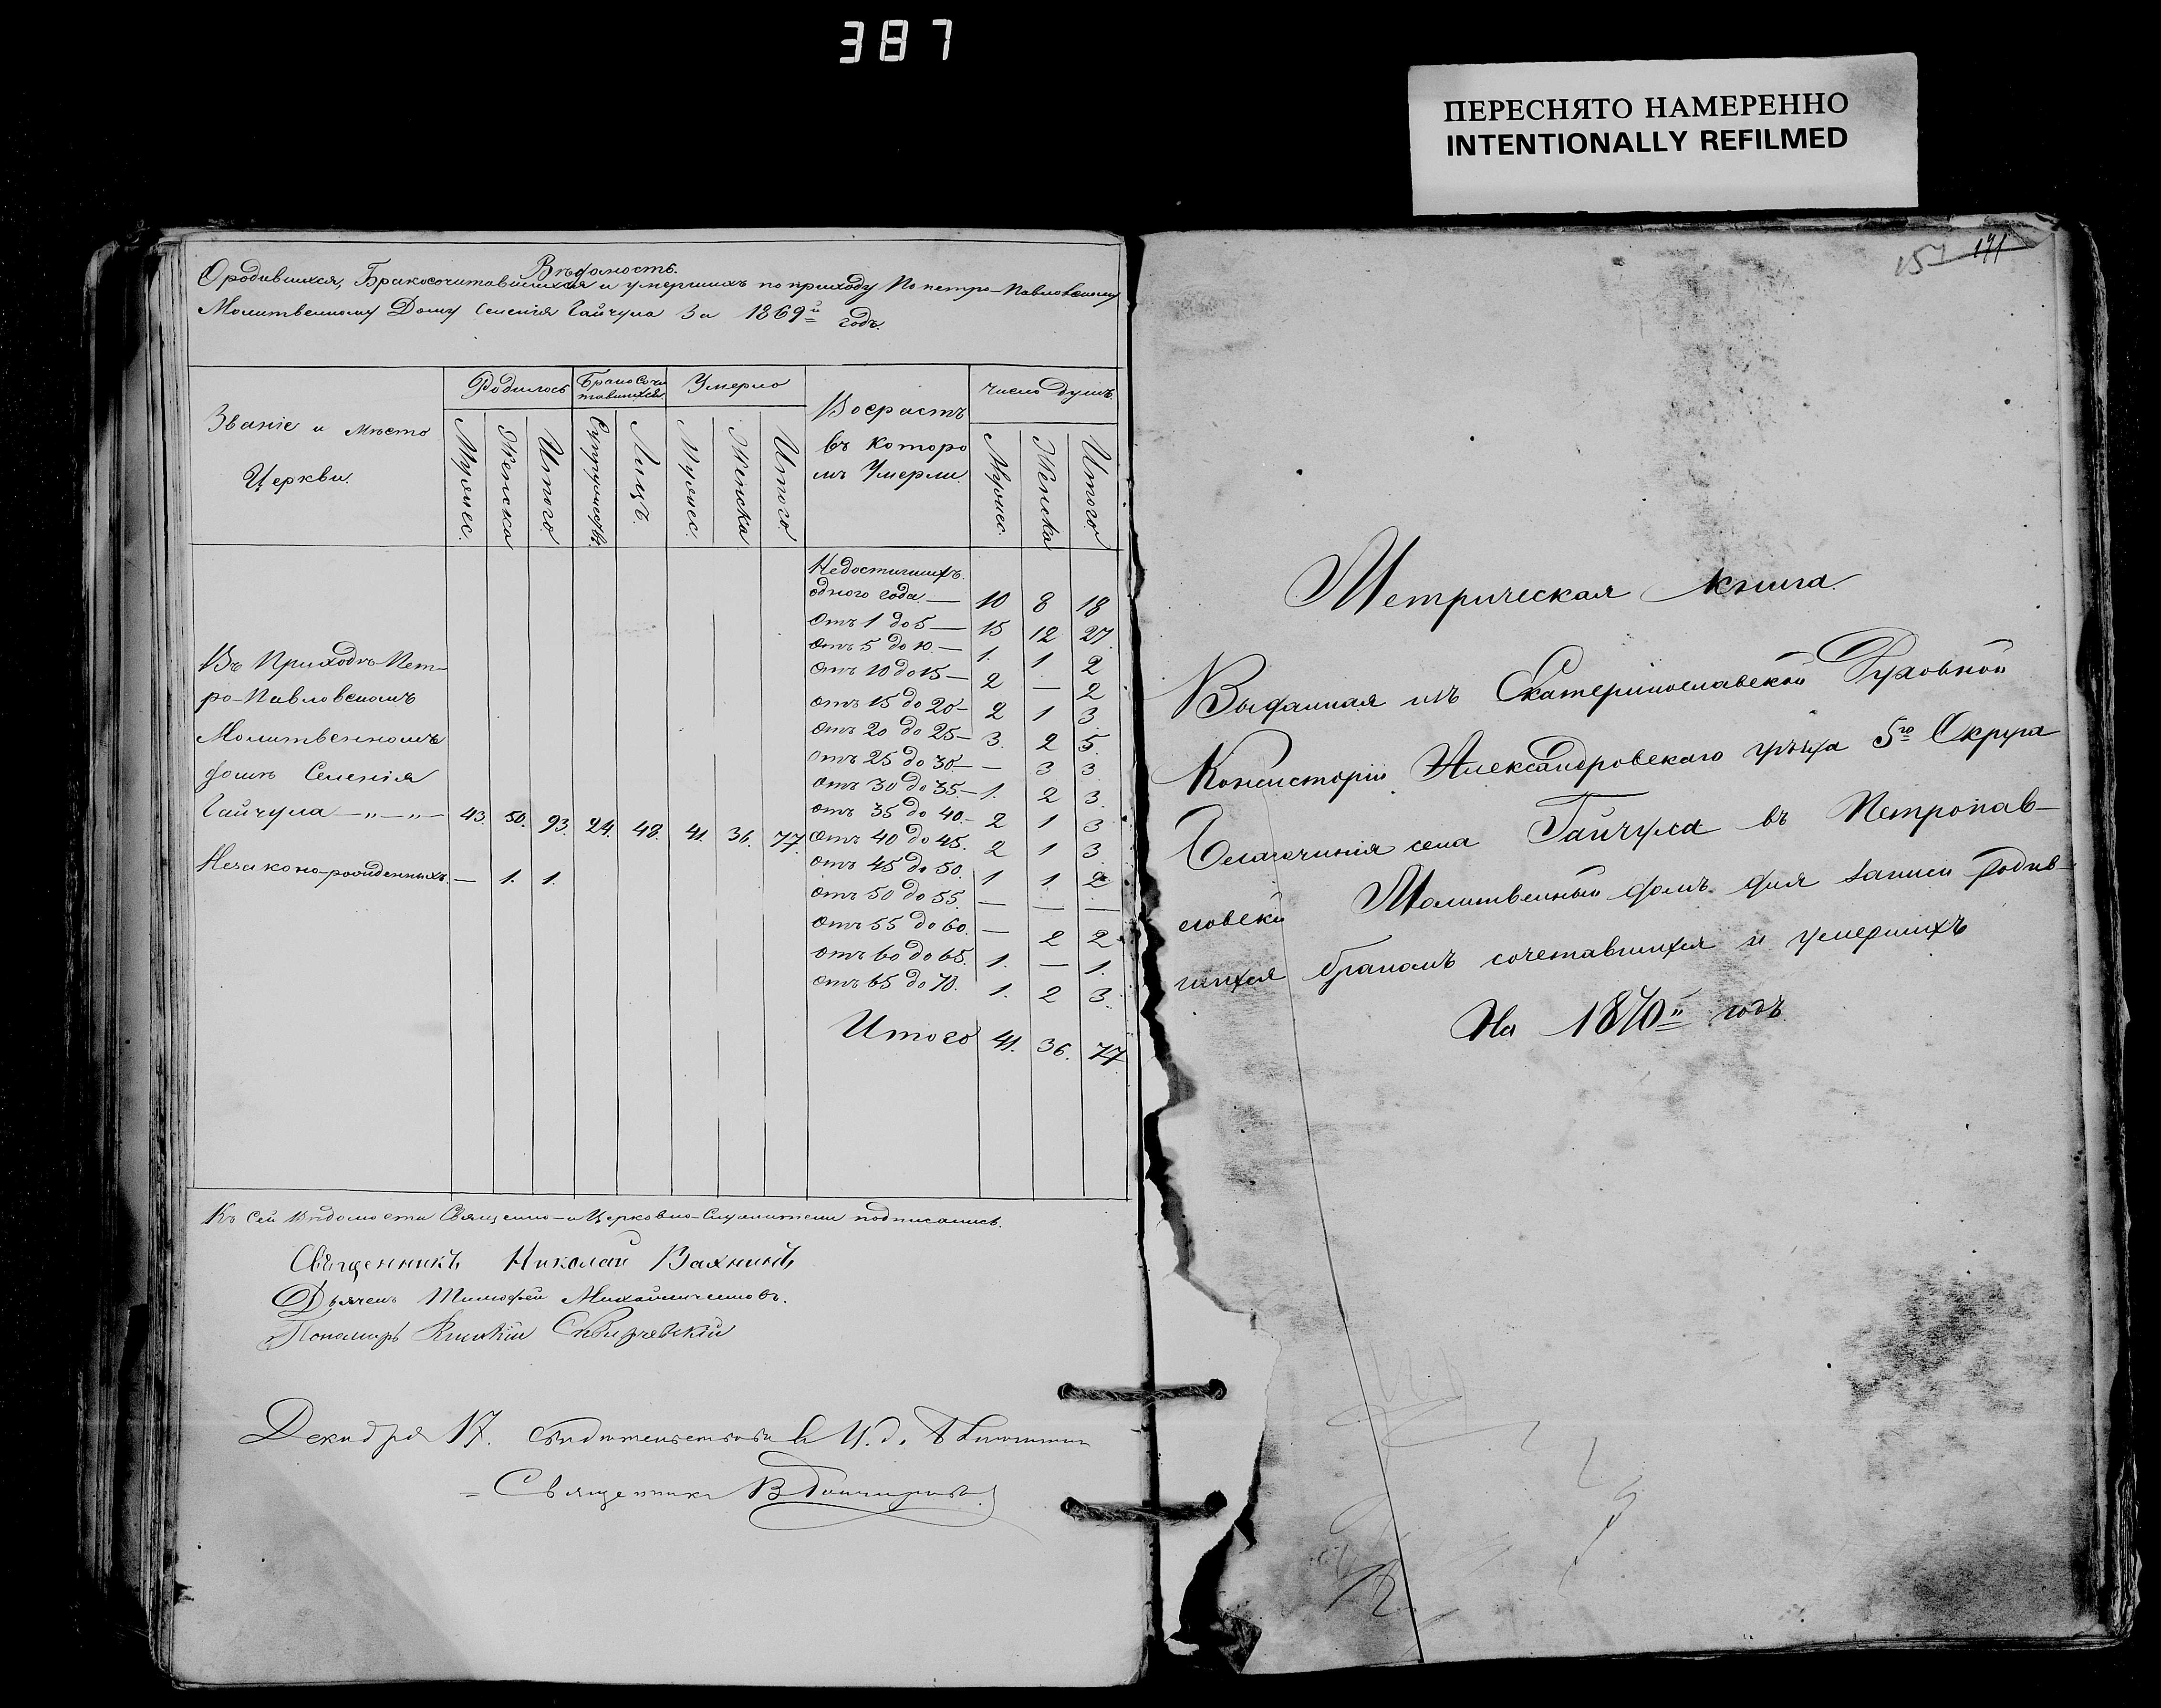 387
ПЕРЕСНЯТО НАМЕРЕННО
INTENTIONALLY REFILMED
Вѣдомость.
О родившихся, Бракосочитавшихся и умершихъ по приходу По петро-Павловскому
Молитвенному Дому Селенія Гайчула За 1869й годъ.
Званіе и мѣсто Церкви.
Родилось
Бракосочитавшихся
Умерло
Возрастъ въ которомъ Умерли
число душъ
Мужес.
Женска
Итого
Супружествъ
Лицъ
Мужес.
Женска
Итого
Мужес.
Женска
Итого
Недостигшихъ
одного года — 10 8 18
Отъ 1 до 5 — 15 12 27
Отъ 5 до 10 — 1. 1 2
Отъ 10 до 15 — 2 — 2
Отъ 15 до 20 — 2 1 3
Отъ 20 до 25 — 3. 2 5.
Отъ 25 до 30 — — 3 3
Отъ 30 до 35 — 1. 2 3.
Отъ 35 до 40. — 2 1 3
Отъ 40 до 45. 2 1 3.
Отъ 45 до 50. 1 1 2
Отъ 50 до 55. — — —
Отъ 55 до 60. — 2 2
Отъ 60 до 65. 1. — 1.
Отъ 65 до 70. 1. 2 3.
Итого 41. 36. 77
Въ Приходѣ Пет-
ро-Павловскомъ
Молитвенномъ
домѣ Селенія
Гайчула —„—„— 43. 50. 93. 24. 48. 41. 36. 77.
Незаконо-рожденныхъ. — 1. 1.
Къ сей вѣдомости Священно-и Церковно-Служители подписались.
Священникъ Николай Вахнинъ
Дьячекъ Тимофей
Пономарь
Декабря 17. свидѣтельствовалъ И. д.
Священникъ
157 171
Метрическая книга
Выданная изъ Екатеринославской Духовной
Консисторіи Александровскаго уѣзда 5го Округа
Благочинія села Гайчула въ Петропав-
ловскій Молитвенный домъ для записи родив-
шихся бракомъ сочетавшихся и умершихъ
На 1870й годъ